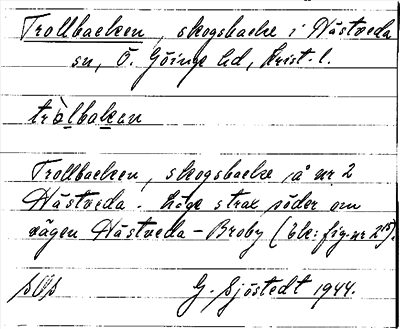 Trollbacken, skogsbacke i Hästveda
sn, Ö. Göinge hd, Krist. l.
tròlbakan
Trollbacken, skogsbacke å nr 2
Hästveda. Lige strax söder om
vägen Hästveda-Broby (Ek: fig. nr 2
G. Sjöstedt 1944.